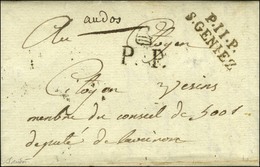 P.11.P.
S. GENIEZ
audos
Au Citoyen
P. P.
Citoyen Yesins
membre du conseil de 500
deputé de laveiron